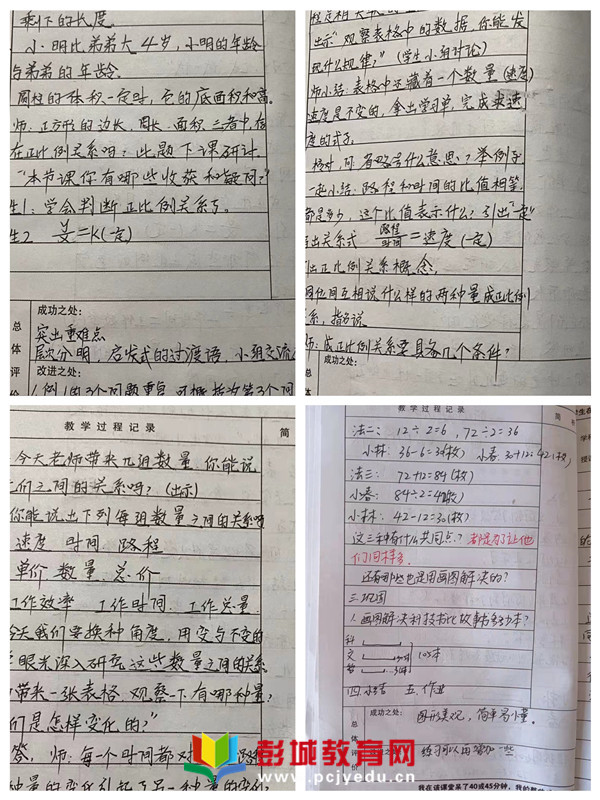 剩下的长度
小明比弟弟大4岁,小明的年龄
与弟弟的年龄.
圆柱的体积一定时,它的底面积和高.
师:正方形的边长、周长、面积三者中,存
在正比例关系吗?此题下课研讨.
"本节课你有哪些收获和疑问?"
生1:学会判断正比例关系了.
生2 y/x=K(一定)
总体评
成功之处:
突出重难点
层次分明,启发式的过渡语,小组交流
改进之处:
出示"观察表格中的数据,你能发
现什么规律?"(学生小组讨论)
师小结:表格中还藏着一个数量(速度)
速度是不变的,拿出学习单,完成求速
度的式子.
核对,问:省略号什么意思?举例子
一起小结:路程和时间的比值相等.
都是多少,这个比值表示什么?引出"一定"
出关系式 路程/时间=速度(一定)
出正比例关系概念,
同位互相说什么样的两种量成正比例
系,指名说
师:成正比例关系要具备几个条件?
总体评
成功之处:
教学过程记录
简
今天老师带来几组数量,你能说
们之间的关系吗?(出示)
你能说出下列每组数量之间的关系吗
速度 时间 路程
单价 数量 总价
工作效率 工作时间 工作总量
今天我们要换种角度,用变与不变的
眼光深入研究这些数量之间的关系
带来一张表格 观察一下有哪种量?
们是怎样变化的?"
答,师:每一个时间都对
教学过程记录
简
法二: 12÷2=6, 72÷2=36
小林: 36-6=30(枚) 小春:30+12=42(枚)
法三: 72+12=84(枚)
小春: 84÷2=42(枚)
小林: 42-12=30(枚)
这三种有什么共同点?都是为了让他
们同样多.
还有哪些也是用画图解决的?
三.巩固
1.画图解决科技书比故事书多多少本?
科
文
105本
四.小结 五.作业
总体评价
成功之处:
图形美观,简单易懂.
改进之处:
练习可以再增加一些
我在该课堂呆了40或45分钟,我的
彭城教育网
www.pcjyedu.cn